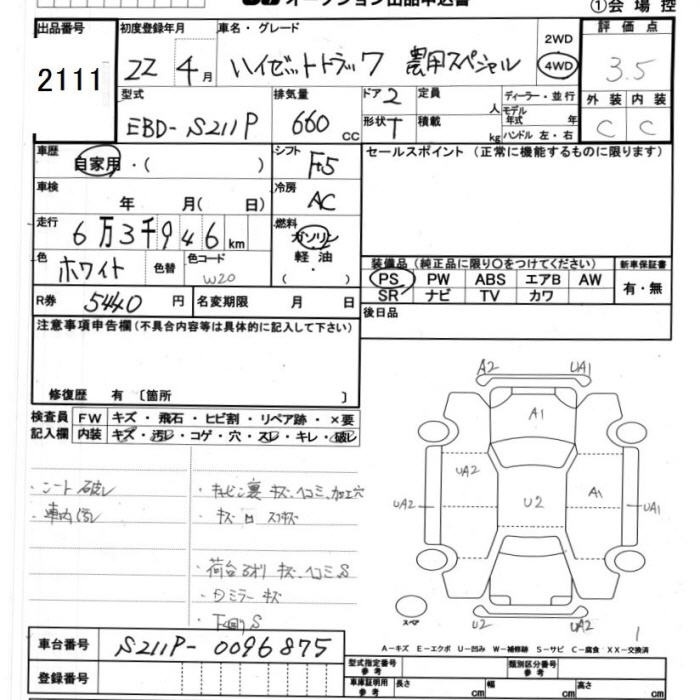 オークション出品申込書
①会場控
出品番号 初度登録年月 車名・グレード 2WD 評価点
2111 22 4月 ハイゼットトラック 農用スペシャル 4WD 3.5
型式 排気量 ドア2 定員 人 ディーラー・並行 外装 内装
EBD-S211P 660cc 形状T 積載 kg モデル年式 年 ハンドル 左・右 C C
車歴 シフト セールスポイント (正常に機能するものに限ります)
自家用・( ) F5
車検 冷房
年 月( 日) AC
走行 燃料
6万3千946km ガソリン
色 色替 色コード 軽油
ホワイト W20 ( ・ )
装備品(純正品に限り〇をつけてください) 新車保証書
PS PW ABS エアB AW 有・無
SR ナビ TV カワ
R券 5440円 名変期限 月 日
後日品
注意事項申告欄(不具合内容等は具体的に記入して下さい)
修復歴 有 〔箇所 〕
検査員 FW キズ・飛石・ヒビ割・リペア跡・×要
記入欄 内装 キズ・汚レ・コゲ・穴・スレ・キレ・破レ
・シート破レ
・車内汚レ
・キャビン裏 キズ、ヘコミ、加工穴
・荷台アオリ キズ、ヘコミ S
・ミラー キズ
・下回り S
A2 UA1
A1
UA2 UA2 U2 A1 UA1
スペア
U2 UA2
1
A-キズ E-エクボ U-凹み W-補修跡 S-サビ C-腐食 XX-交換済
車台番号 S211P-0096875
登録番号
型式指定番号 参考 類別区分番号 参考
車庫証明用 参考 長さ cm 幅 cm 高さ cm